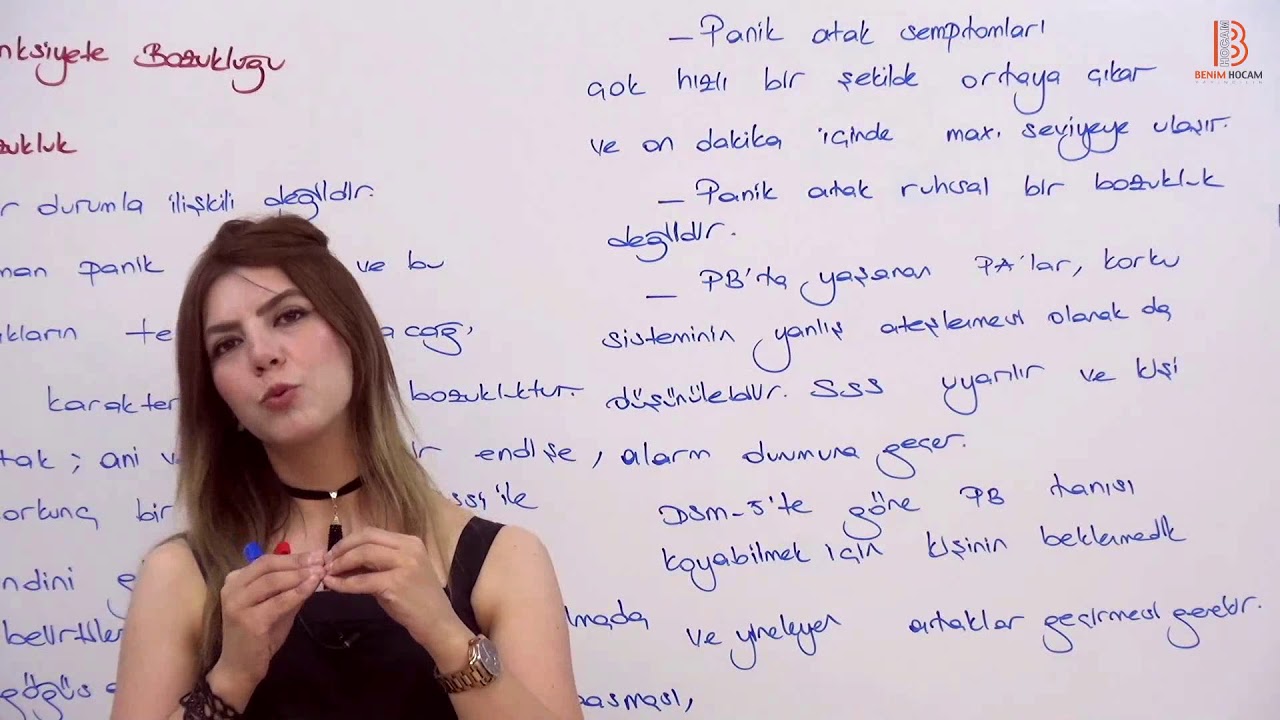 nksiyete Bozukluğu
zukluk
r durumla ilişkili değildir.
man panik ve bu
kların te acağı,
karakter bozukluktur.
tak; ani v ir endişe,
korkunç bir ssi ile
ndini
belirtiler lmada
göğüs basması,
– Panik atak semptomları
çok hızlı bir şekilde ortaya çıkar
ve on dakika içinde max. seviyeye ulaşır.
– Panik atak ruhsal bir bozukluk
değildir.
– PB'ta yaşanan PA'lar, korku
sisteminin yanlış ateşlemesi olarak da
düşünülebilir. SSS uyarılır ve kişi
alarm durumuna geçer.
DSM-5'te göre PB tanısı
koyabilmek için kişinin beklenmedik
ve yineleyen ataklar geçirmesi gerekir.
BENİM HOCAM